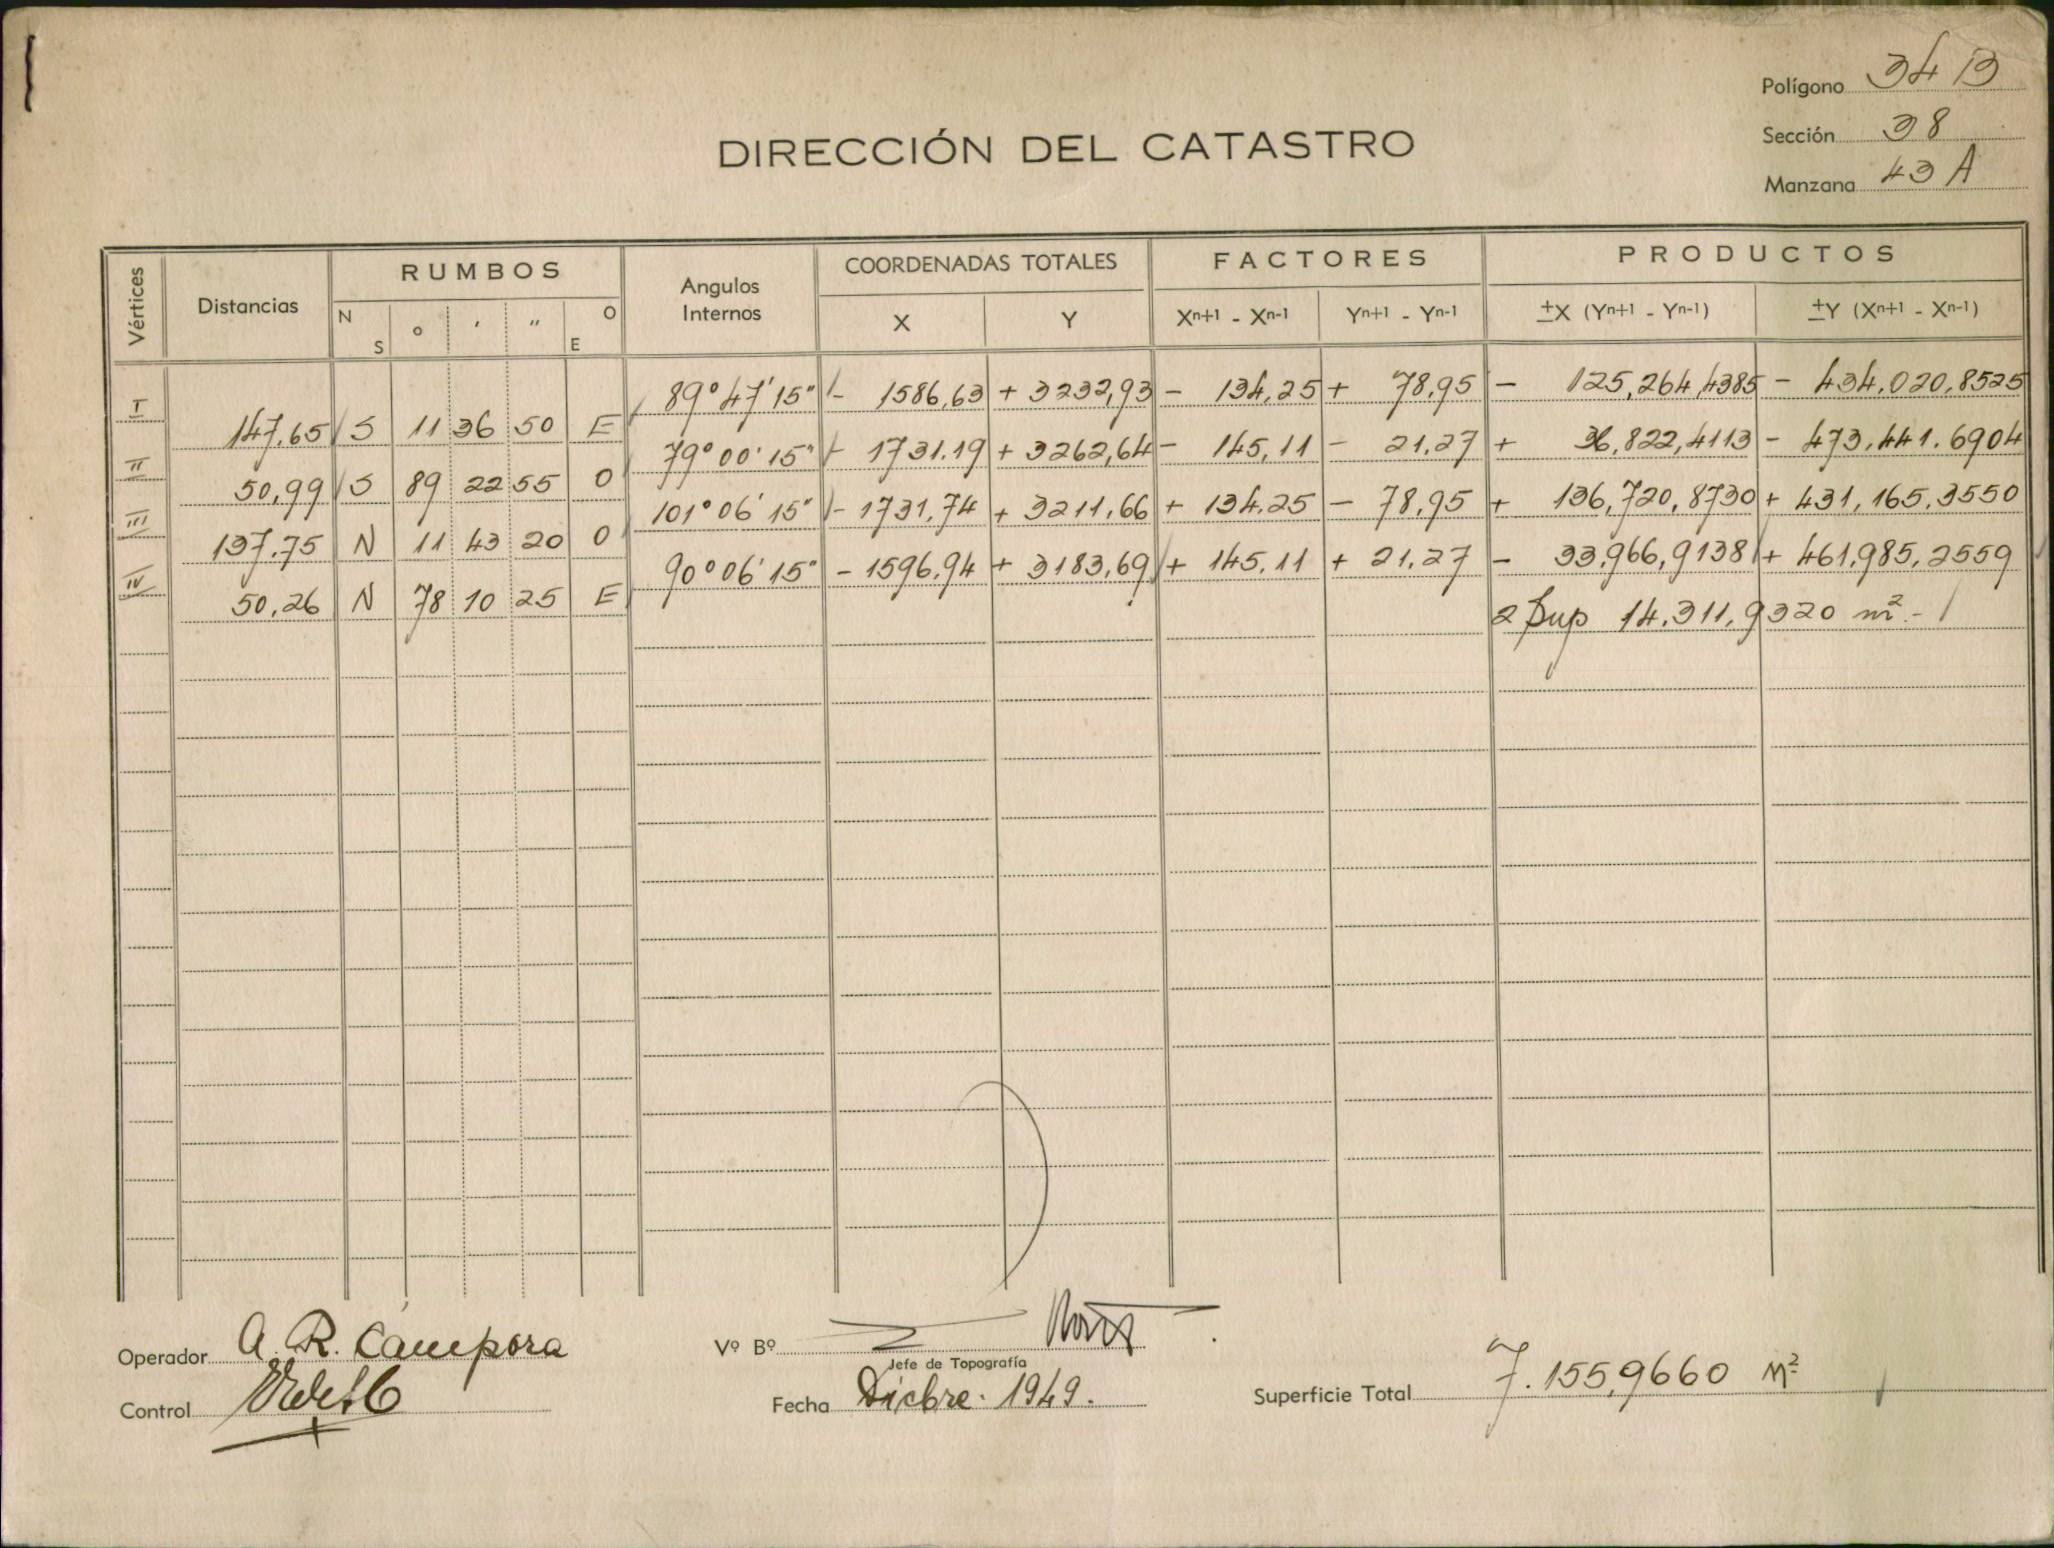 Polígono 34 B
Sección 38
DIRECCIÓN DEL CATASTRO
Manzana 43 A
Vértices Distancias RUMBOS Angulos Internos COORDENADAS TOTALES FACTORES PRODUCTOS
N S o ' " O E X Y Xn+1 - Xn-1 Yn+1 - Yn-1 ±X (Yn+1 - Yn-1) ±Y (Xn+1 - Xn-1)
I 89° 47' 15" - 1586,63 + 3232,93 - 134,25 + 78,95 - 125,264,4385 - 434,020,8525
147,65 S 11 36 50 E
II 79° 00' 15" - 1731.19 + 3262,64 - 145,11 - 21,27 + 36,822,4113 - 473,441.6904
50,99 S 89 22 55 O
III 101° 06' 15" - 1731,74 + 3211,66 + 134,25 - 78,95 + 136,720,8730 + 431,165,3550
137,75 N 11 43 20 O
IV 90° 06' 15" - 1596,94 + 3183,69 + 145,11 + 21,27 - 33,966,9138 + 461,985,2559
50,26 N 78 10 25 E
2 Sup 14,311,9320 m² -
Operador A. R. Cámpora
Vº Bº
Jefe de Topografía
Control
Fecha Dicbre. 1949.
Superficie Total 7.155,9660 M²